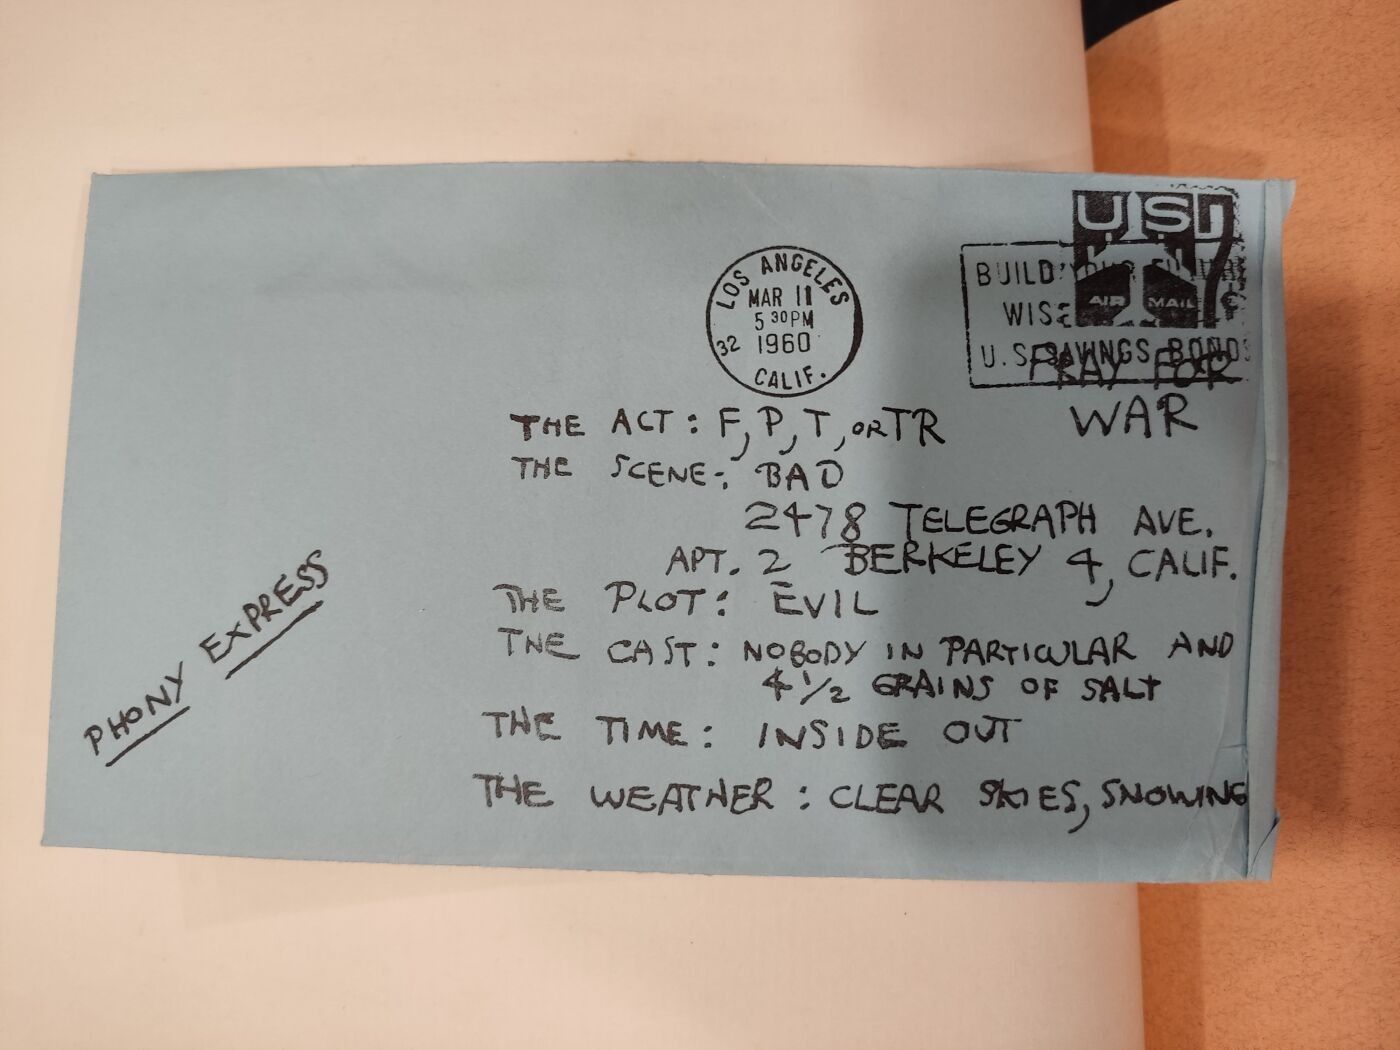 LOS ANGELES
MAR 11
5 30PM
1960
32
CALIF.
US
7¢
AIR MAIL
BUILD YOUR FUTURE
WISELY
U.S. SAVINGS BONDS
PRAY FOR
WAR
THE ACT: F, P, T, OR TR
THE SCENE: BAD
2478 TELEGRAPH AVE.
APT. 2 BERKELEY 4, CALIF.
THE PLOT: EVIL
THE CAST: NOBODY IN PARTICULAR AND
4 1/2 GRAINS OF SALT
THE TIME: INSIDE OUT
THE WEATHER: CLEAR SKIES, SNOWING
PHONY EXPRESS